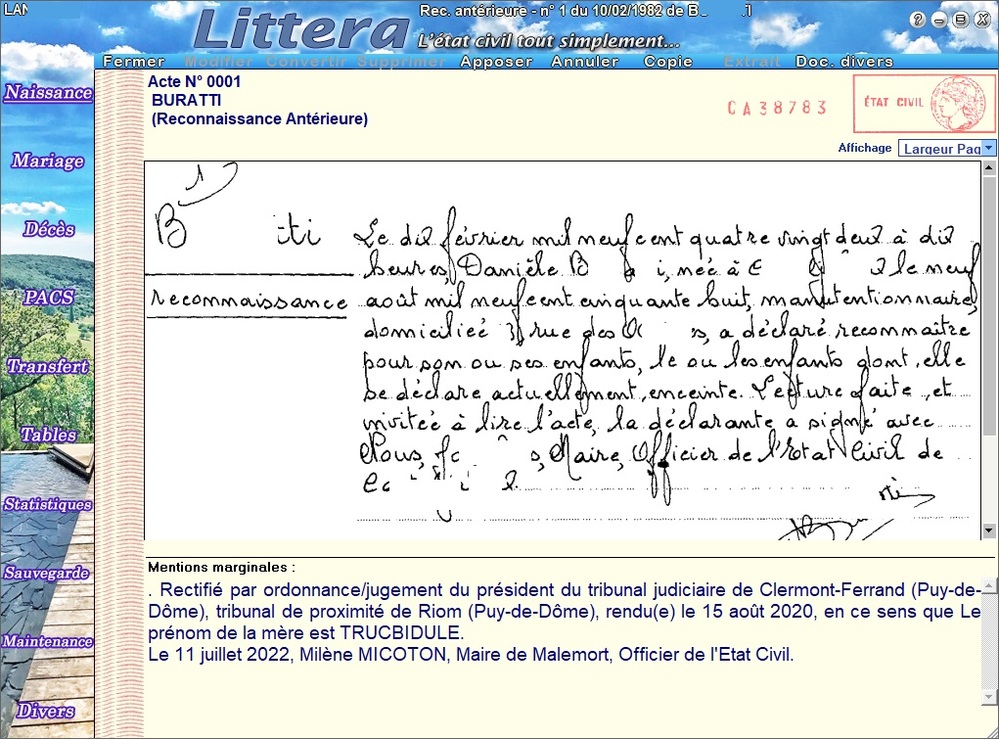 LAN
Rec. antérieure - n° 1 du 10/02/1982 de B
Littera
L'état civil tout simplement...
Fermer Modifier Convertir Supprimer Apposer Annuler Copie Extrait Doc. divers
Naissance
Mariage
Décès
PACS
Transfert
Tables
Statistiques
Sauvegarde
Maintenance
Divers
Acte N° 0001
BURATTI
(Reconnaissance Antérieure)
CA38783
ÉTAT CIVIL
Affichage Largeur Pag
1
B tti
reconnaissance
Le dix février mil neuf cent quatre vingt deux à dix
heures, Danièle B i, née à le neuf
août mil neuf cent cinquante huit, manutentionnaire,
domiciliée rue des s, a déclaré reconnaître
pour son ou ses enfants, le ou les enfants dont elle
se déclare actuellement enceinte. Lecture faite et
invitée à lire l'acte, la déclarante a signé avec
Nous, s, Maire, Officier de l'Etat Civil de
Mentions marginales :
. Rectifié par ordonnance/jugement du président du tribunal judiciaire de Clermont-Ferrand (Puy-de-
Dôme), tribunal de proximité de Riom (Puy-de-Dôme), rendu(e) le 15 août 2020, en ce sens que Le
prénom de la mère est TRUCBIDULE.
Le 11 juillet 2022, Milène MICOTON, Maire de Malemort, Officier de l'Etat Civil.